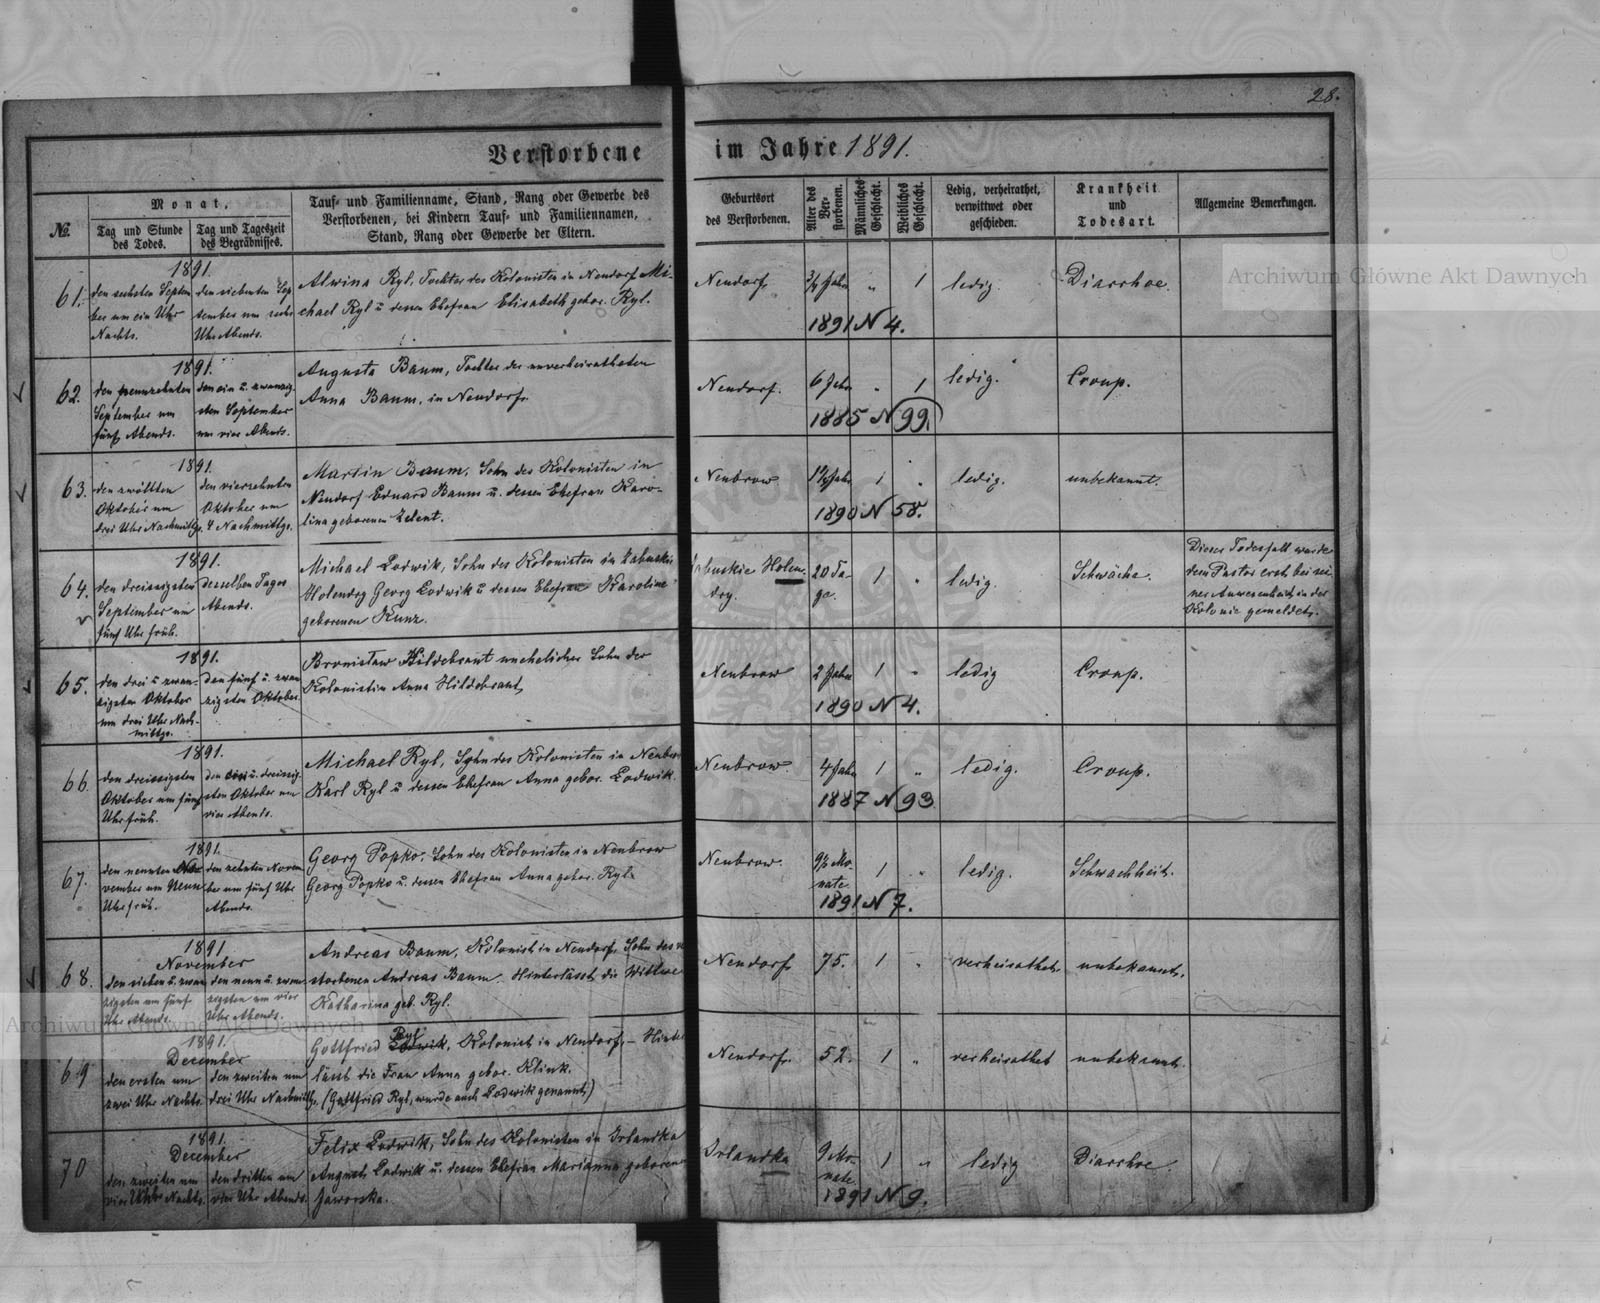 28.
Verstorbene im Jahre 1891.
№.
Monat,
Tag und Stunde des Todes.
Tag und Tageszeit des Begräbnisses.
Tauf- und Familienname, Stand, Rang oder Gewerbe des
Verstorbenen, bei Kindern Tauf- und Familiennamen,
Stand, Rang oder Gewerbe der Eltern.
Geburtsort
des Verstorbenen.
Alter des Ver-
storbenen.
Männliches Geschlecht.
Weibliches Geschlecht.
Ledig, verheirathet,
verwittwet oder
geschieden.
Krankheit
und
Todesart.
Allgemeine Bemerkungen.
61.
1891.
den sechsten Septem
ber um ein Uhr
Nachts.
den siebenten Sep
tember um sechs
Uhr Abends.
Alwina Ryl, Tochter des Kolonisten in Neudorf Mi-
chael Ryl u dessen Ehefrau Elisabeth gebor. Ryl.
Neudorf
3/4 Jahr
„
1
ledig.
Diarrhoe.
1891 N 4.
62.
1891.
den neunzehnten
September um
fünf Abends.
den ein u. zwanzig-
sten September
um vier Abends.
Augusta Baum, Tochter der unverheiratheten
Anna Baum, in Neudorf.
Neudorf.
6 Jahr
„
1
ledig.
Croup.
1885 N 99.
63.
1891.
den zwölften
Oktober um
drei Uhr Nachmittgs.
den vierzehnten
Oktober um
4 Nachmittgs.
Martin Baum, Sohn des Kolonisten in
Neudorf Eduard Baum u. dessen Ehefrau Karo-
lina geborenen Zelent.
Neubrow
1 1/2 Jahr
1
„
ledig.
unbekannt.
1890 N 58.
64.
1891.
den dreissigsten
September um
fünf Uhr früh.
desselben Tages
Abends.
Michael Ludwik, Sohn des Kolonisten in Zabuskie
Holendry Georg Ludwik u dessen Ehefrau Karoline
geborenen Kunz.
Zabuskie Holen-
dry.
20 Ta-
ge.
1
„
ledig.
Schwäche.
Dieser Todesfall wurde
dem Pastor erst bei sei
ner Anwesenheit in der
Kolonie gemeldet.
65.
1891.
den drei u zwan-
zigsten Oktober
um drei Uhr Nach-
mittgs.
den fünf u. zwan
zigsten Oktober
Bronisław Hildebrant unehelicher Sohn der
Kolonistin Anna Hildebrant.
Neubrow
2 Jahr
1
„
ledig
Croup.
1890 N 4.
66.
1891.
den dreissigsten
Oktober um fünf
Uhr früh.
den ein u. dreissig-
sten Oktober um
vier Abends.
Michael Ryl, Sohn des Kolonisten in Neubrow
Karl Ryl u dessen Ehefrau Anna gebor. Ludwik.
Neubrow.
4 Jahr
1
„
ledig.
Croup.
1887 N 93
67.
1891.
den neunten No-
vember um Neun
Uhr früh.
den zehnten Novem
ber um fünf Uhr
Abends.
Georg Popko, Sohn des Kolonisten in Neubrow
Georg Popko u. dessen Ehefrau Anna gebor. Ryl.
Neubrow.
9 1/2 Mo-
nate.
1
„
ledig.
Schwachheit.
1891 N 7.
68.
1891
November
den sieben u. zwan
zigsten um fünf
Uhr Abends.
den neun u. zwan
zigsten um vier
Uhr Abends.
Andreas Baum, Kolonist in Neudorf, Sohn des ver
storbenen Andreas Baum. Hinterlässt die Wittwe
Katharina geb. Ryl.
Neudorf
75.
1
„
verheirathet.
unbekannt.
69
1891.
December
den ersten um
zwei Uhr Nachts.
den zweiten um
drei Uhr Nachmittgs.
Ryl
Gottfried Ludwik, Kolonist in Neudorf, – Hinter
lässt die Frau Anna gebor. Klink.
(Gottfried Ryl, wurde auch Ludwik genannt)
Neudorf.
52.
1
„
verheirathet
unbekannt.
70
1891.
December
den zweiten um
vier Uhr Nachts.
den dritten um
vier Uhr Abends.
Felix Ludwik, Sohn des Kolonisten in Irlandka
August Ludwik u. dessen Ehefrau Marianna geborenen
Jaworska.
Irlandka
9 Mo-
nate.
1
„
ledig
Diarrhoe.
1891 N 9.
Archiwum Główne Akt Dawnych
Archiwum Główne Akt Dawnych